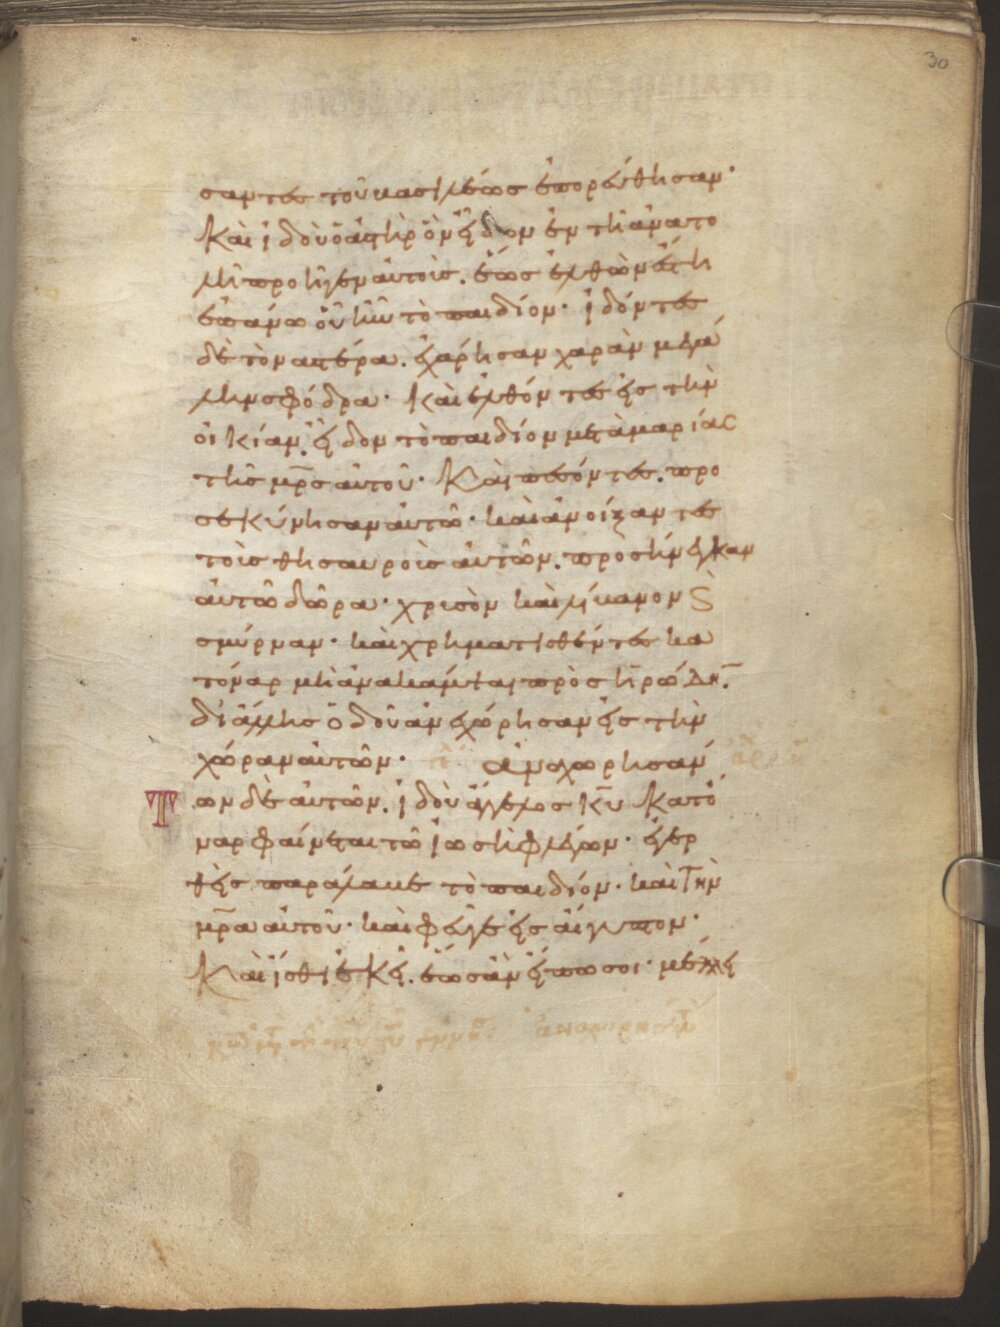 30
σαντες τοῦ βασιλέως ἐπορεύθησαν·
Καὶ ἰδοὺ ὁ ἀστὴρ ὃν εἶδον ἐν τῆ ἀνατο
λῆ προῆγεν αὐτοὶς. ἕως ἐλθὼν ἔστη
ἐπάνω οὗ ἦν τὸ παιδίον· ἰδόντες
δὲ τὸν ἀστέρα. ἐχάρησαν χαρὰν μεγά
λην σφόδρα· Καὶ ἐλθόντες εἰς τὴν
οἰκίαν. εἶδον τὸ παιδίον μετὰ μαρίας
τῆς μρ̅ς αὐτοῦ· Καὶ πεσόντες. προ
σεκύνησαν αὐτῶ· καὶ ἀνοίξαντες
τοὶς θησαυροὶς αὐτῶν. προσήνεγκαν
αὐτῶ δῶρα· χρισὸν καὶ λίβανον Ϛ̀
σμύρναν· καὶ χρηματισθέντες κα
τόναρ μὴ ἀνακάμψαι πρὸς ἡρώδην.
δι ἄλλης ὁδοῦ ἀνεχώρησαν εἰς τὴν
χώραν αὐτῶν· ἀναχωρησάν
Τ ων δὲ αὐτῶν. ἰδοὺ ἄγγελος κ̅υ κατό
ναρ φαίνεται τῶ ἰωσὴφ λέγων· ἐγερ
θεὶς παράλαβε τὸ παιδίον· καὶ τὴν
μρ̅α αὐτοῦ· καὶ φεῦγε εἰς αἴγυπτον·
Καὶ ἴσθι ἐκεῖ. ἕως ἂν εἴπω σοι· μέλλει